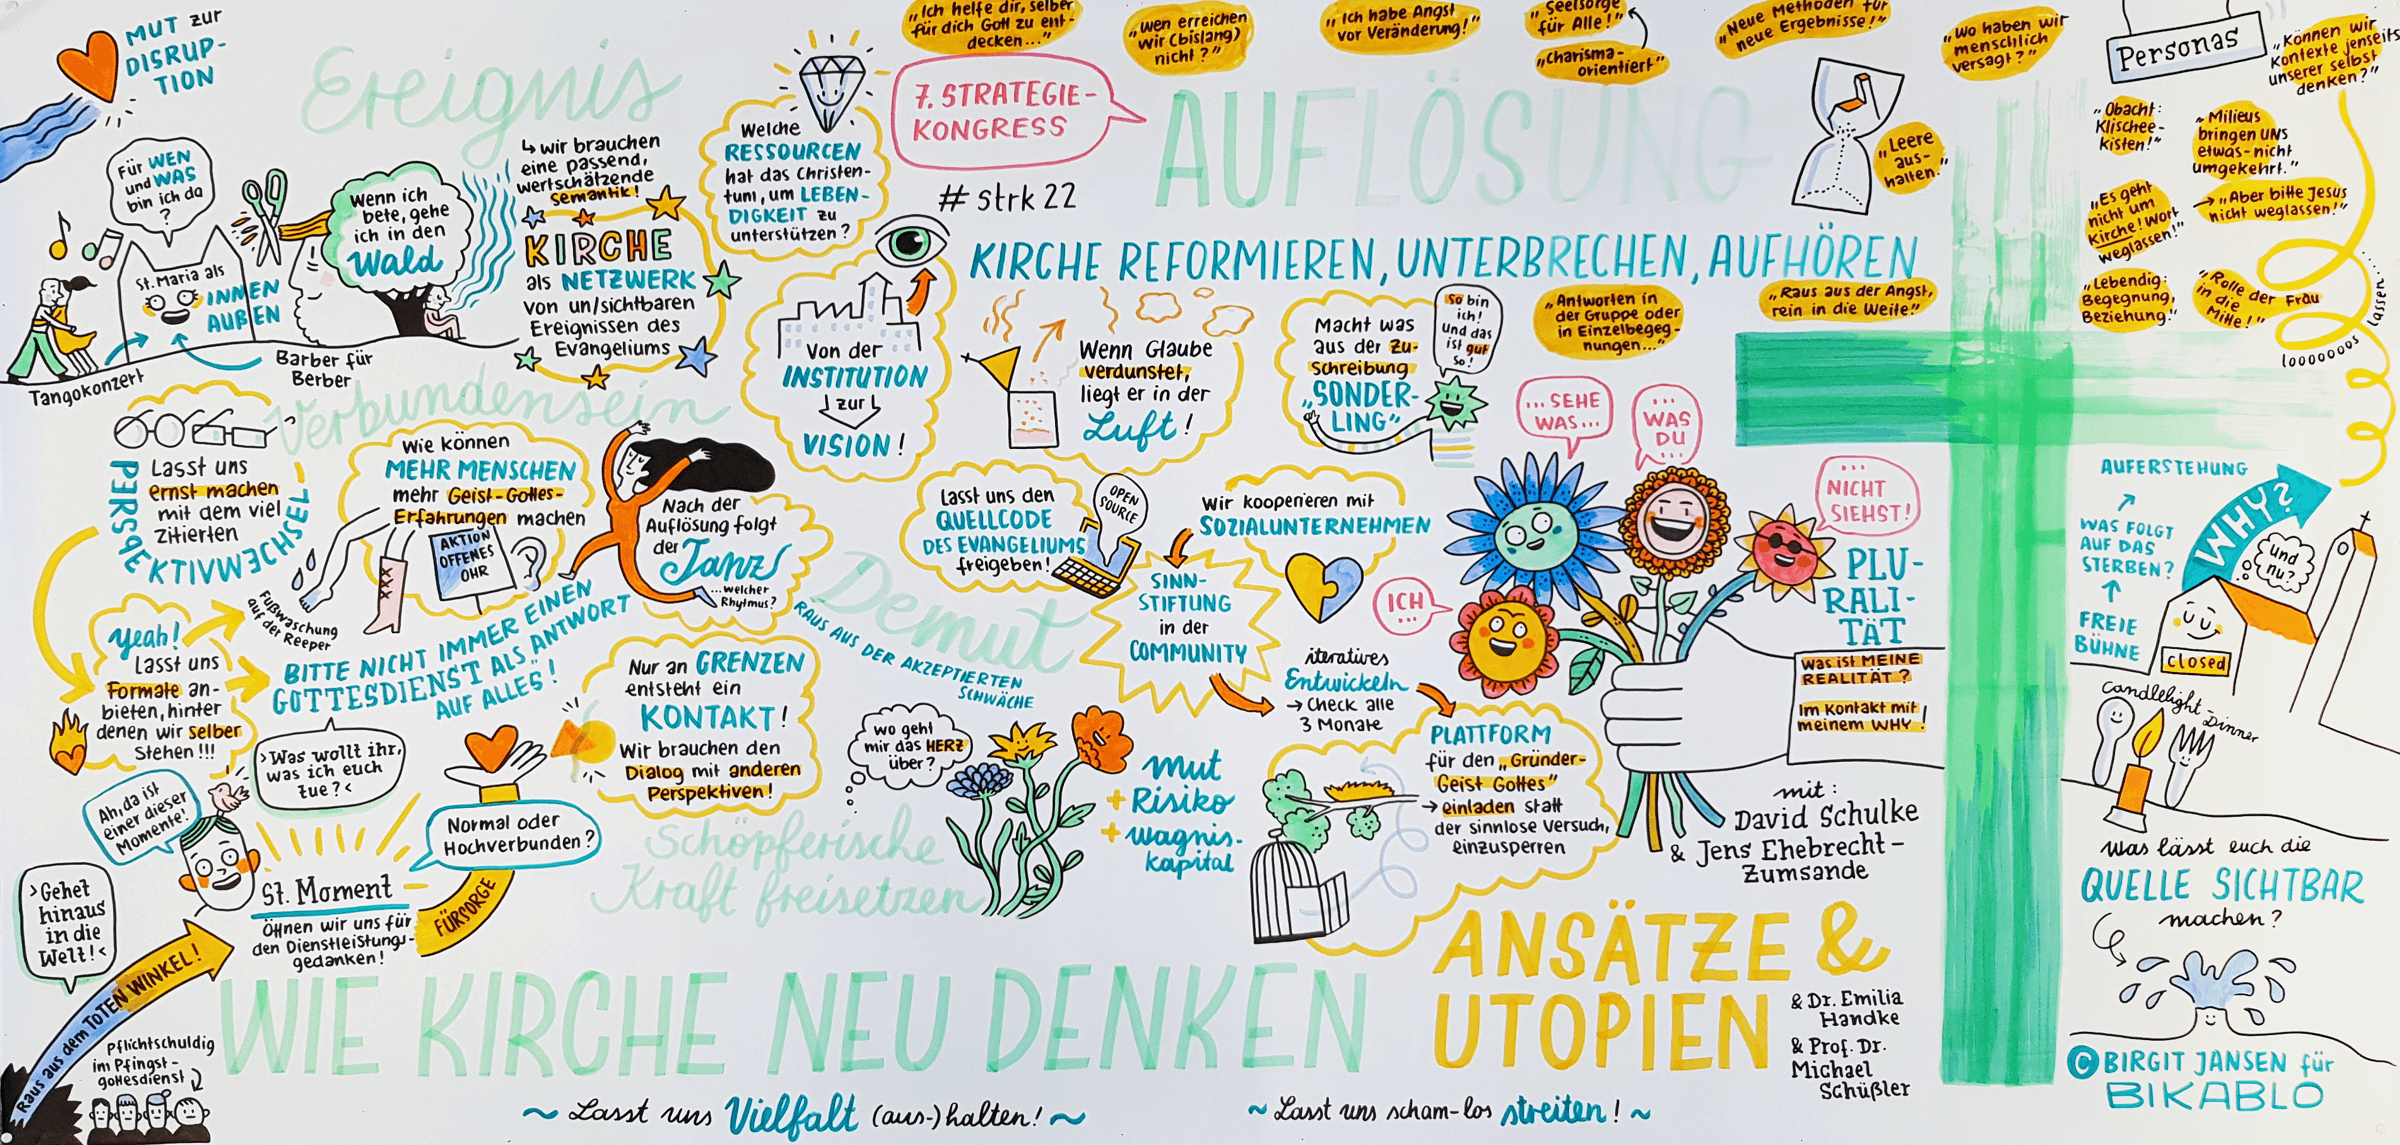 MUT zur
DISRUP-
TION
Ereignis
Für WEN
und WAS
bin ich da
?
St. Maria als
INNEN
AUßEN
Tangokonzert
Barber für
Berber
Wenn ich
bete, gehe
ich in den
Wald
↳ wir brauchen
eine passend,
wertschätzende
Semantik!
KIRCHE
als NETZWERK
von un/sichtbaren
Ereignissen des
Evangeliums
Welche
RESSOURCEN
hat das Christen-
tum, um LEBEN-
DIGKEIT zu
unterstützen?
„Ich helfe dir, selber
für dich Gott zu ent-
decken..."
7. STRATEGIE-
KONGRESS
# strk 22
„Wen erreichen
wir (bislang)
nicht?"
„Ich habe Angst
vor Veränderung!"
„Seelsorge
für Alle!"
„Charisma-
orientiert"
„Neue Methoden für
neue Ergebnisse!"
„Wo haben wir
menschlich
versagt?"
AUFLÖSUNG
„Leere
aus-
halten."
KIRCHE REFORMIEREN, UNTERBRECHEN, AUFHÖREN
Personas
„Können wir
Kontexte jenseits
unserer selbst
denken?"
„Obacht:
Klischee-
kisten!"
„Milieus
bringen UNS
etwas-nicht
umgekehrt."
„Es geht
nicht um
Kirche! Wort
weglassen!"
→ „Aber bitte Jesus
nicht weglassen!"
„Lebendig:
Begegnung,
Beziehung."
„Rolle der Frau
in die
Mitte!"
looooooos
lassen....
Von der
INSTITUTION
↓ zur ↓
VISION!
Wenn Glaube
verdunstet,
liegt er in der
Luft!
Macht was
aus der Zu-
schreibung
„SONDER-
LING"
So bin
ich!
und das
ist gut
so!
„Antworten in
der Gruppe oder
in Einzelbegeg-
nungen..."
„Raus aus der Angst,
rein in die Weite!"
Verbundensein
Lasst uns
ernst machen
mit dem viel
zitierten
PERSPEKTIVWECHSEL
Wie können
MEHR MENSCHEN
mehr Geist-Gottes-
Erfahrungen machen
AKTION
OFFENES
OHR
Fußwaschung
auf der Reeper
Nach der
Auflösung folgt
der
Tanz
...welcher
Rhytmus?
Lasst uns den
QUELLCODE
DES EVANGELIUMS
freigeben!
OPEN
SOURCE
Wir kooperieren mit
SOZIALUNTERNEHMEN
SINN-
STIFTUNG
in der
COMMUNITY
iteratives
Entwickeln
→ Check alle
3 Monate
...SEHE
WAS...
...
WAS
DU
...
...
NICHT
SIEHST!
ICH
...
PLU-
RALI-
TÄT
Was ist MEINE
REALITÄT?
Im Kontakt mit
meinem WHY!
AUFERSTEHUNG
↗
WAS FOLGT
AUF DAS
STERBEN?
↑
FREIE
BÜHNE
WHY?
und
nu?
closed
Candlelight-Dinner
Yeah!
Lasst uns
Formate an-
bieten, hinter
denen wir selber
stehen!!!
BITTE NICHT IMMER EINEN
GOTTESDIENST ALS „ANTWORT
AUF ALLES"!
Demut
RAUS AUS DER AKZEPTIERTEN
SCHWÄCHE
Nur an GRENZEN
entsteht ein
KONTAKT!
Wir brauchen den
Dialog mit anderen
Perspektiven!
wo geht
mir das HERZ
über?
mut
+ Risiko
+ wagnis-
kapital
PLATTFORM
für den „Gründer-
Geist Gottes"
→ einladen statt
der sinnlose Versuch,
einzusperren
mit:
David Schulke
& Jens Ehebrecht-
Zumsande
>Was wollt ihr,
was ich euch
tue?<
Ah, da ist
einer dieser
Momente!
Normal oder
Hochverbunden?
>Gehet
hinaus
in die
Welt!<
St. Moment
Öffnen wir uns für
den Dienstleistungs-
gedanken!
FÜRSORGE
Schöpferische
Kraft freisetzen
Raus aus dem TOTEN WINKEL!
Pflichtschuldig
im Pfingst-
gottesdienst
WIE KIRCHE NEU DENKEN
ANSÄTZE &
UTOPIEN
& Dr. Emilia
Handke
& Prof. Dr.
Michael
Schüßler
~ Lasst uns Vielfalt (aus-)halten! ~
~ Lasst uns scham-los streiten! ~
Was lässt euch die
QUELLE SICHTBAR
machen?
© BIRGIT JANSEN für
BIKABLO